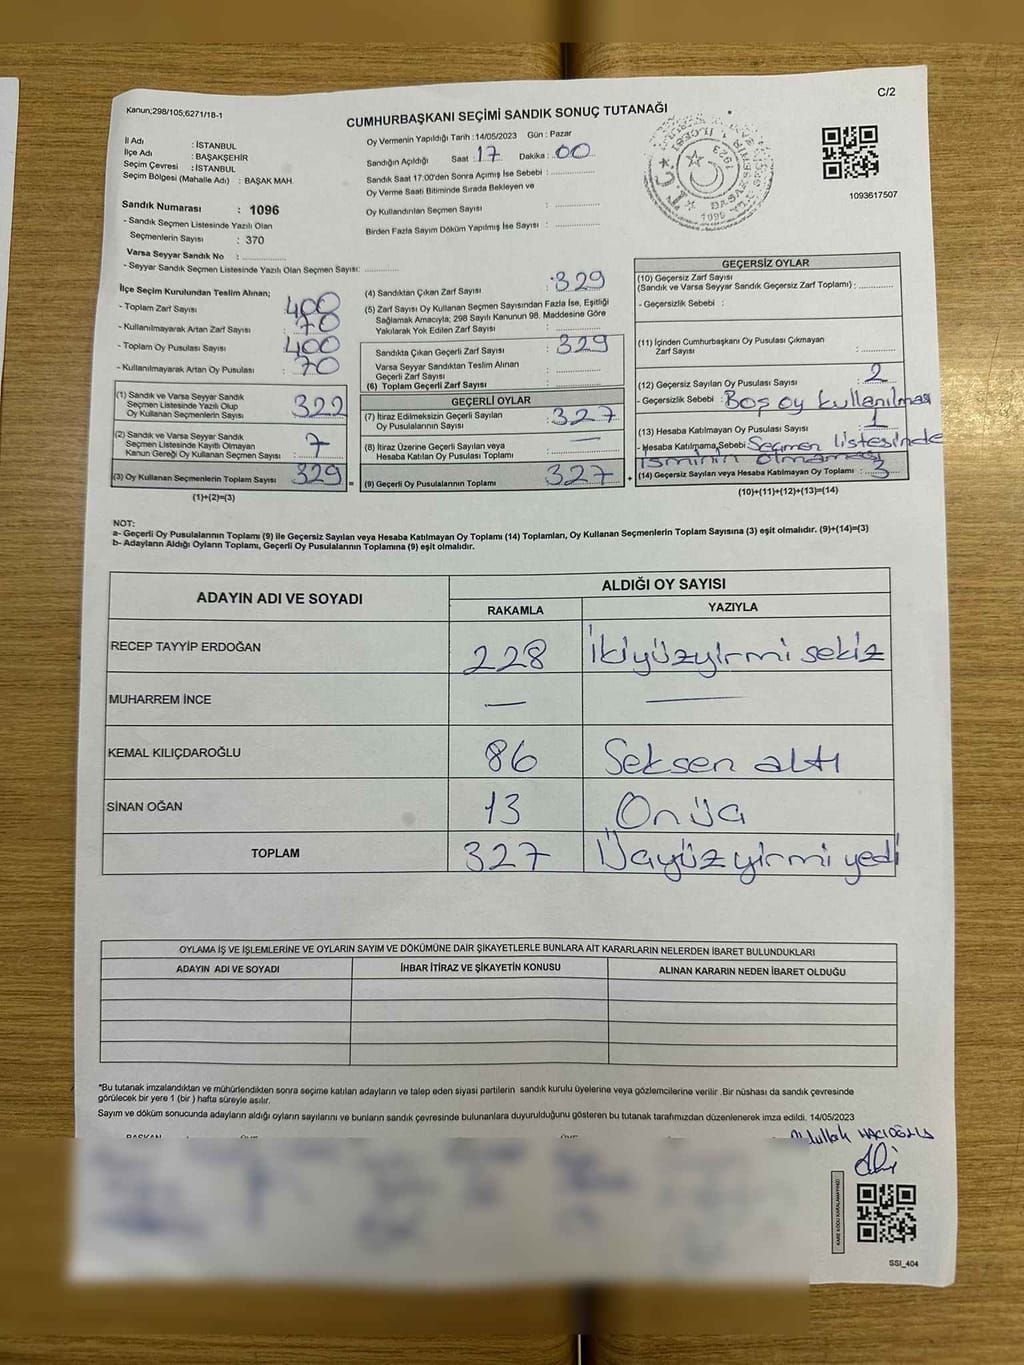 Kanun;298/105;6271/18-1
C/2
CUMHURBAŞKANI SEÇİMİ SANDIK SONUÇ TUTANAĞI
İl Adı : İSTANBUL
İlçe Adı : BAŞAKŞEHİR
Seçim Çevresi : İSTANBUL
Seçim Bölgesi (Mahalle Adı) : BAŞAK MAH.
Sandık Numarası : 1096
- Sandık Seçmen Listesinde Yazılı Olan
Seçmenlerin Sayısı : 370
Varsa Seyyar Sandık No :
- Seyyar Sandık Seçmen Listesinde Yazılı Olan Seçmen Sayısı:
Oy Vermenin Yapıldığı Tarih : 14/05/2023 Gün : Pazar
Sandığın Açıldığı Saat : 17 Dakika : 00
Sandık Saat 17.00'den Sonra Açımış İse Sebebi :
Oy Verme Saati Bitiminde Sırada Bekleyen ve
Oy Kullandırılan Seçmen Sayısı :
Birden Fazla Sayım Döküm Yapılmış İse Sayısı :
T.C.
1923
BAŞAKŞEHİR
1096
1093617507
İlçe Seçim Kurulundan Teslim Alınan;
- Toplam Zarf Sayısı : 400
- Kullanılmayarak Artan Zarf Sayısı : 70
- Toplam Oy Pusulası Sayısı : 400
- Kullanılmayarak Artan Oy Pusulası : 70
(1) Sandık ve Varsa Seyyar Sandık
Seçmen Listesinde Yazılı Olup
Oy Kullanan Seçmenlerin Sayısı : 322
(2) Sandık ve Varsa Seyyar Sandık
Seçmen Listesinde Kayıtlı Olmayan
Kanun Gereği Oy Kullanan Seçmen Sayısı : 7
(3) Oy Kullanan Seçmenlerin Toplam Sayısı : 329
(1)+(2)=(3)
(4) Sandıktan Çıkan Zarf Sayısı : 329
(5) Zarf Sayısı Oy Kullanan Seçmen Sayısından Fazla İse, Eşitliği
Sağlamak Amacıyla; 298 Sayılı Kanunun 98. Maddesine Göre
Yakılarak Yok Edilen Zarf Sayısı :
Sandıkta Çıkan Geçerli Zarf Sayısı : 329
Varsa Seyyar Sandıktan Teslim Alınan
Geçerli Zarf Sayısı :
(6) Toplam Geçerli Zarf Sayısı :
GEÇERLİ OYLAR
(7) İtiraz Edilmeksizin Geçerli Sayılan
Oy Pusulalarının Sayısı : 327
(8) İtiraz Üzerine Geçerli Sayılan veya
Hesaba Katılan Oy Pusulası Toplamı : —
= (9) Geçerli Oy Pusulalarının Toplamı : 327 +
GEÇERSİZ OYLAR
(10) Geçersiz Zarf Sayısı
(Sandık ve Varsa Seyyar Sandık Geçersiz Zarf Toplamı) :
- Geçersizlik Sebebi :
(11) İçinden Cumhurbaşkanı Oy Pusulası Çıkmayan
Zarf Sayısı :
(12) Geçersiz Sayılan Oy Pusulası Sayısı : 2
- Geçersizlik Sebebi : Boş oy kullanılması
(13) Hesaba Katılmayan Oy Pusulası Sayısı : 1
- Hesaba Katılmama Sebebi : Seçmen listesinde
isminin olmaması
(14) Geçersiz Sayılan veya Hesaba Katılmayan Oy Toplamı : 3
(10)+(11)+(12)+(13)=(14)
NOT:
a- Geçerli Oy Pusulalarının Toplamı (9) ile Geçersiz Sayılan veya Hesaba Katılmayan Oy Toplamı (14) Toplamları, Oy Kullanan Seçmenlerin Toplam Sayısına (3) eşit olmalıdır. (9)+(14)=(3)
b- Adayların Aldığı Oyların Toplamı, Geçerli Oy Pusulalarının Toplamına (9) eşit olmalıdır.
ADAYIN ADI VE SOYADI ALDIĞI OY SAYISI
RAKAMLA YAZIYLA
RECEP TAYYİP ERDOĞAN 228 İkiyüzyirmi sekiz
MUHARREM İNCE — —
KEMAL KILIÇDAROĞLU 86 Seksen altı
SİNAN OĞAN 13 Onüç
TOPLAM 327 Üçyüzyirmi yedi
OYLAMA İŞ VE İŞLEMLERİNE VE OYLARIN SAYIM VE DÖKÜMÜNE DAİR ŞİKAYETLERLE BUNLARA AİT KARARLARIN NELERDEN İBARET BULUNDUKLARI
ADAYIN ADI VE SOYADI İHBAR İTİRAZ VE ŞİKAYETİN KONUSU ALINAN KARARIN NEDEN İBARET OLDUĞU
*Bu tutanak imzalandıktan ve mühürlendikten sonra seçime katılan adayların ve talep eden siyasi partilerin sandık kurulu üyelerine veya gözlemcilerine verilir .Bir nüshası da sandık çevresinde
görülecek bir yere 1 (bir ) hafta süreyle asılır.
Sayım ve döküm sonucunda adayların aldığı oyların sayılarını ve bunların sandık çevresinde bulunanlara duyurulduğunu gösteren bu tutanak tarafımızdan düzenlenerek imza edildi. 14/05/2023
BAŞKAN ÜYE ÜYE
Abdullah HACIOĞLU
KARE KODU KARALAMAYINIZ!
SSI_404